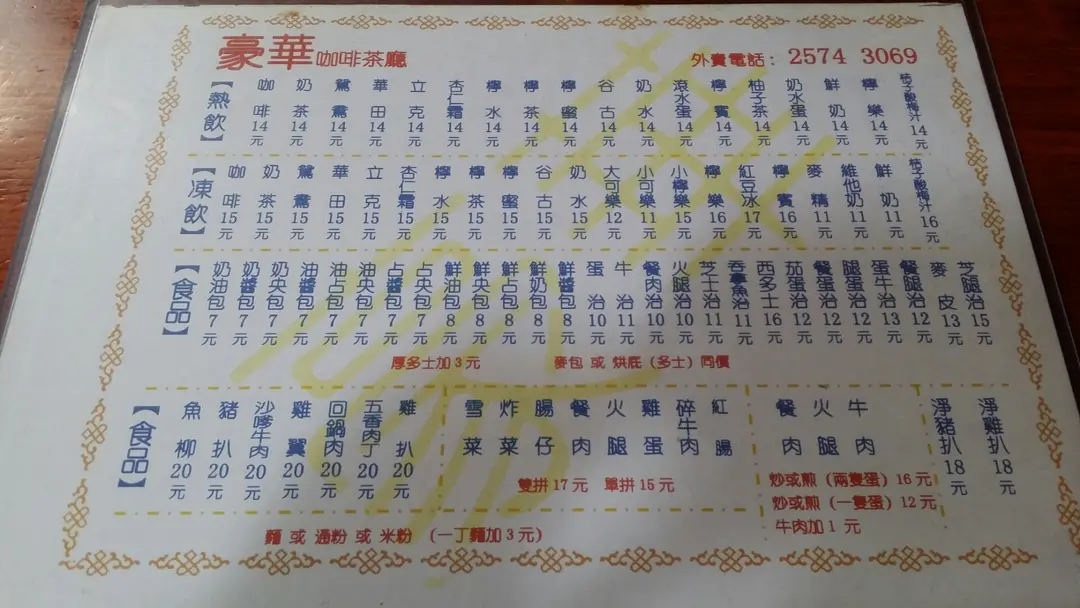 豪華咖啡茶廳
外賣電話：2574 3069
【熱飲】
咖啡14元
奶茶14元
鴛鴦14元
華田14元
立克14元
杏仁霜14元
檸水14元
檸茶14元
檸蜜14元
谷古14元
奶水14元
滾水蛋14元
檸賓14元
柚子茶14元
奶水蛋14元
鮮奶14元
檸樂14元
桔子酸梅汁14元
【凍飲】
咖啡15元
奶茶15元
鴛鴦15元
華田15元
立克15元
杏仁霜15元
檸水15元
檸茶15元
檸蜜15元
谷古15元
奶水15元
大可樂12元
小可樂11元
小檸樂15元
檸樂16元
紅豆冰17元
檸賓16元
麥精11元
維他奶11元
鮮奶11元
桔子酸梅汁16元
【食品】
奶油包7元
奶醬包7元
奶央包7元
油醬包7元
油占包7元
油央包7元
占醬包7元
占央包7元
鮮油包8元
鮮央包8元
鮮占包8元
鮮奶包8元
鮮醬包8元
蛋治10元
牛治11元
餐肉治10元
火腿治10元
芝士治11元
吞拿魚治11元
西多士16元
茄蛋治12元
餐蛋治12元
腿蛋治12元
蛋牛治13元
餐腿治12元
麥皮13元
芝腿治15元
厚多士加3元
麥包 或 烘底（多士）同價
【食品】
魚柳20元
豬扒20元
沙嗲牛肉20元
雞翼20元
回鍋肉20元
五香肉丁20元
雞扒20元
雪菜
炸菜
腸仔
餐肉
火腿
雞蛋
碎牛肉
紅腸
雙拼17元 單拼15元
餐肉
火腿
牛肉
炒或煎（兩隻蛋）16元
炒或煎（一隻蛋）12元
牛肉加1元
淨豬扒18元
淨雞扒18元
麵 或 通粉 或 米粉 （一丁麵加3元）